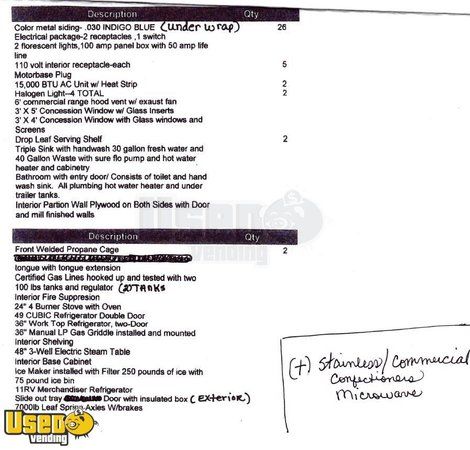 Description Qty
Color metal siding- .030 INDIGO BLUE (under wrap) 26
Electrical package-2 receptacles ,1 switch
2 florescent lights,100 amp panel box with 50 amp life
line
110 volt interior receptacle-each 5
Motorbase Plug
15,000 BTU AC Unit w/ Heat Strip 2
Halogen Light--4 TOTAL 2
6' commercial range hood vent w/ exaust fan
3' X 5' Concession Window w/ Glass Inserts
3' X 4' Concession Window with Glass windows and
Screens
Drop Leaf Serving Shelf 2
Triple Sink with handwash 30 gallon fresh water and
40 Gallon Waste with sure flo pump and hot water
heater and cabinetry
Bathroom with entry door/ Consists of toilet and hand
wash sink. All plumbing hot water heater and under
trailer tanks.
Interior Partion Wall Plywood on Both Sides with Door
and mill finished walls
USED vending
Description Qty
Front Welded Propane Cage 2
tongue with tongue extension
Certified Gas Lines hooked up and tested with two
100 lbs tanks and regulator (2) TANKS
Interior Fire Suppresion
24" 4 Burner Stove with Oven
49 CUBIC Refrigerator Double Door
36" Work Top Refrigerator, two-Door
36" Manual LP Gas Griddle installed and mounted
Interior Shelving
48" 3-Well Electric Steam Table
Interior Base Cabinet
Ice Maker installed with Filter 250 pounds of ice with
75 pound ice bin
11RV Merchandiser Refrigerator
Slide out tray Door with insulated box (Exterior)
7000lb Leaf Spring Axles W/brakes
(+) Stainless/Commercial
Confectioners
Microwave
USED vending